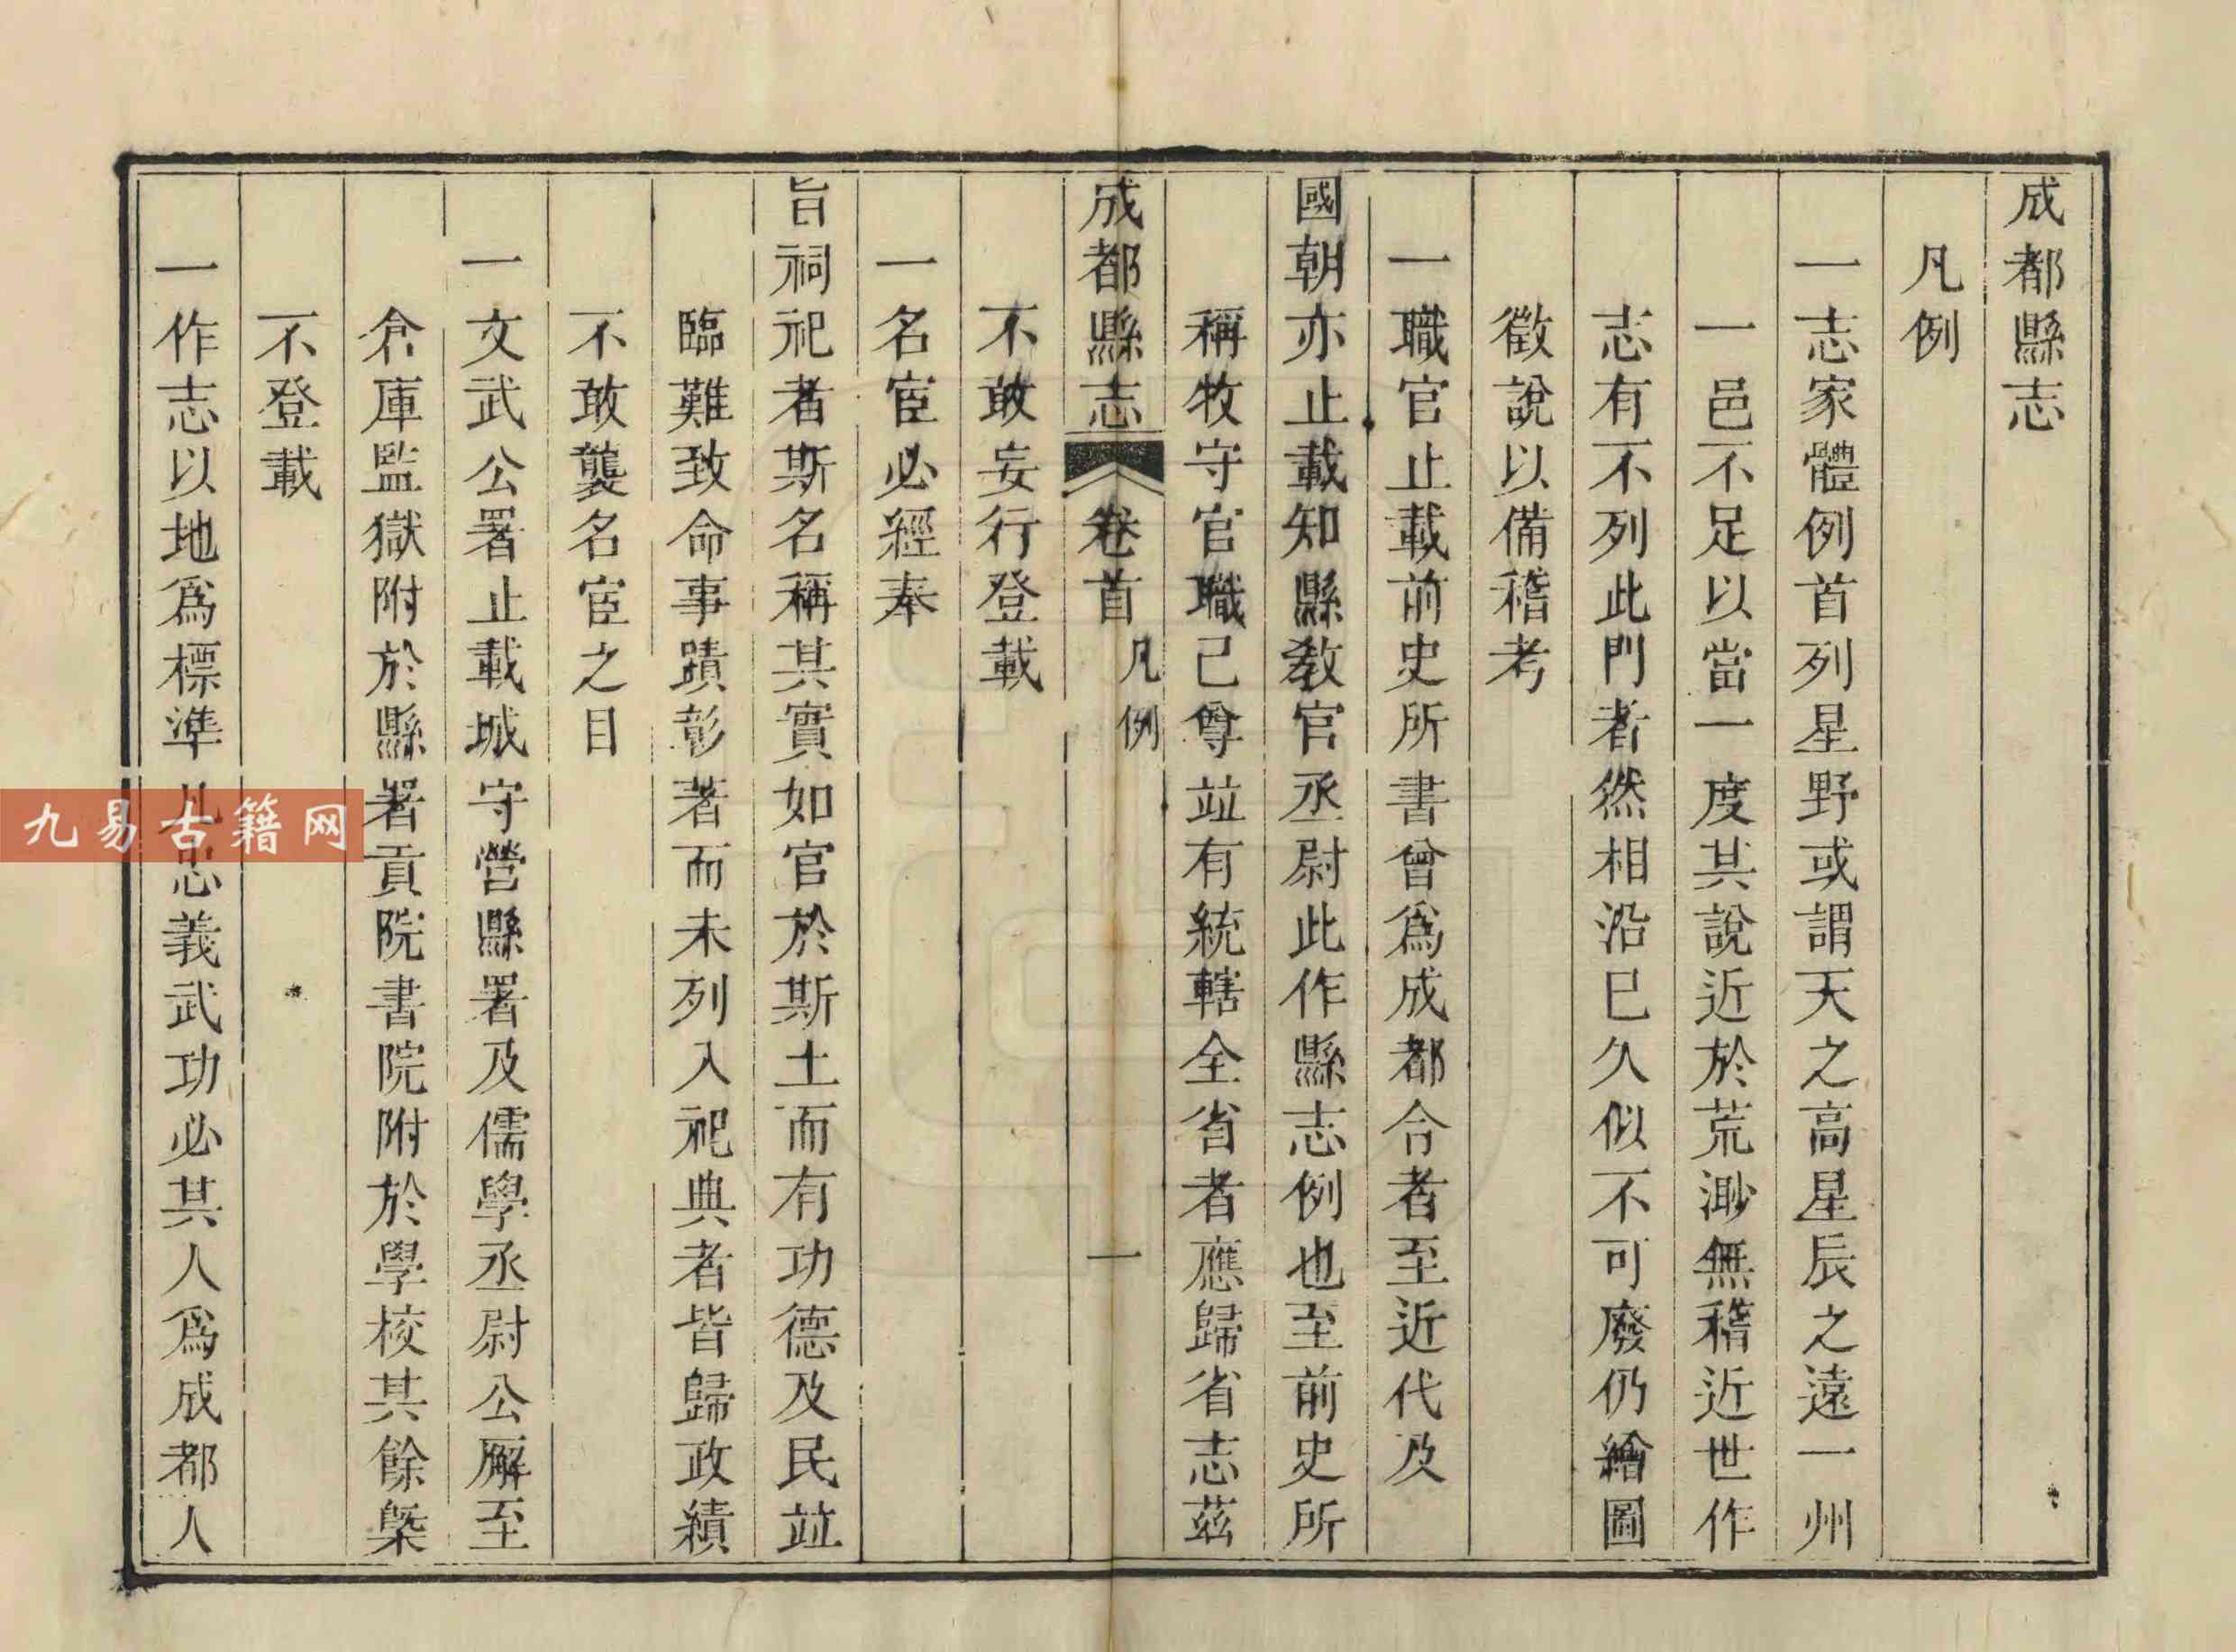 成都縣志
凡例
一志家體例首列星野或謂天之高星辰之遠一州
一邑不足以當一度其說近於荒渺無稽近世作
志有不列此門者然相沿已久似不可廢仍繪圖
徵說以備稽考
一職官止載前史所書曾爲成都合者至近代及
國朝亦止載知縣教官丞尉此作縣志例也至前史所
稱牧守官職已尊竝有統轄全省者應歸省志茲
不敢妄行登載
成都縣志 卷首 凡例 一
一名宦必經奉
旨祠祀者斯名稱其實如官於斯土而有功德及民竝
臨難致命事蹟彰著而未列入祀典者皆歸政績
不敢襲名宦之目
一文武公署止載城守營縣署及儒學丞尉公廨至
倉庫監獄附於縣署貢院書院附於學校其餘槩
不登載
一作志以地爲標準凡忠義武功必其人爲成都人
九易古籍网